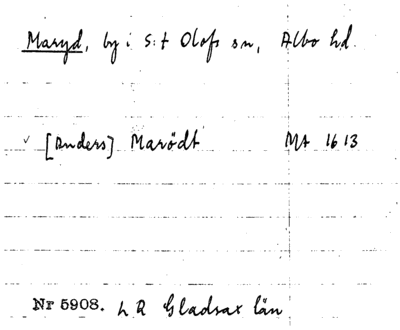 Maryd, by i S:t Olofs sn, Albo hd.
✓ [Anders] Marödt MA 1613
Nr 5908. LR Gladsax län